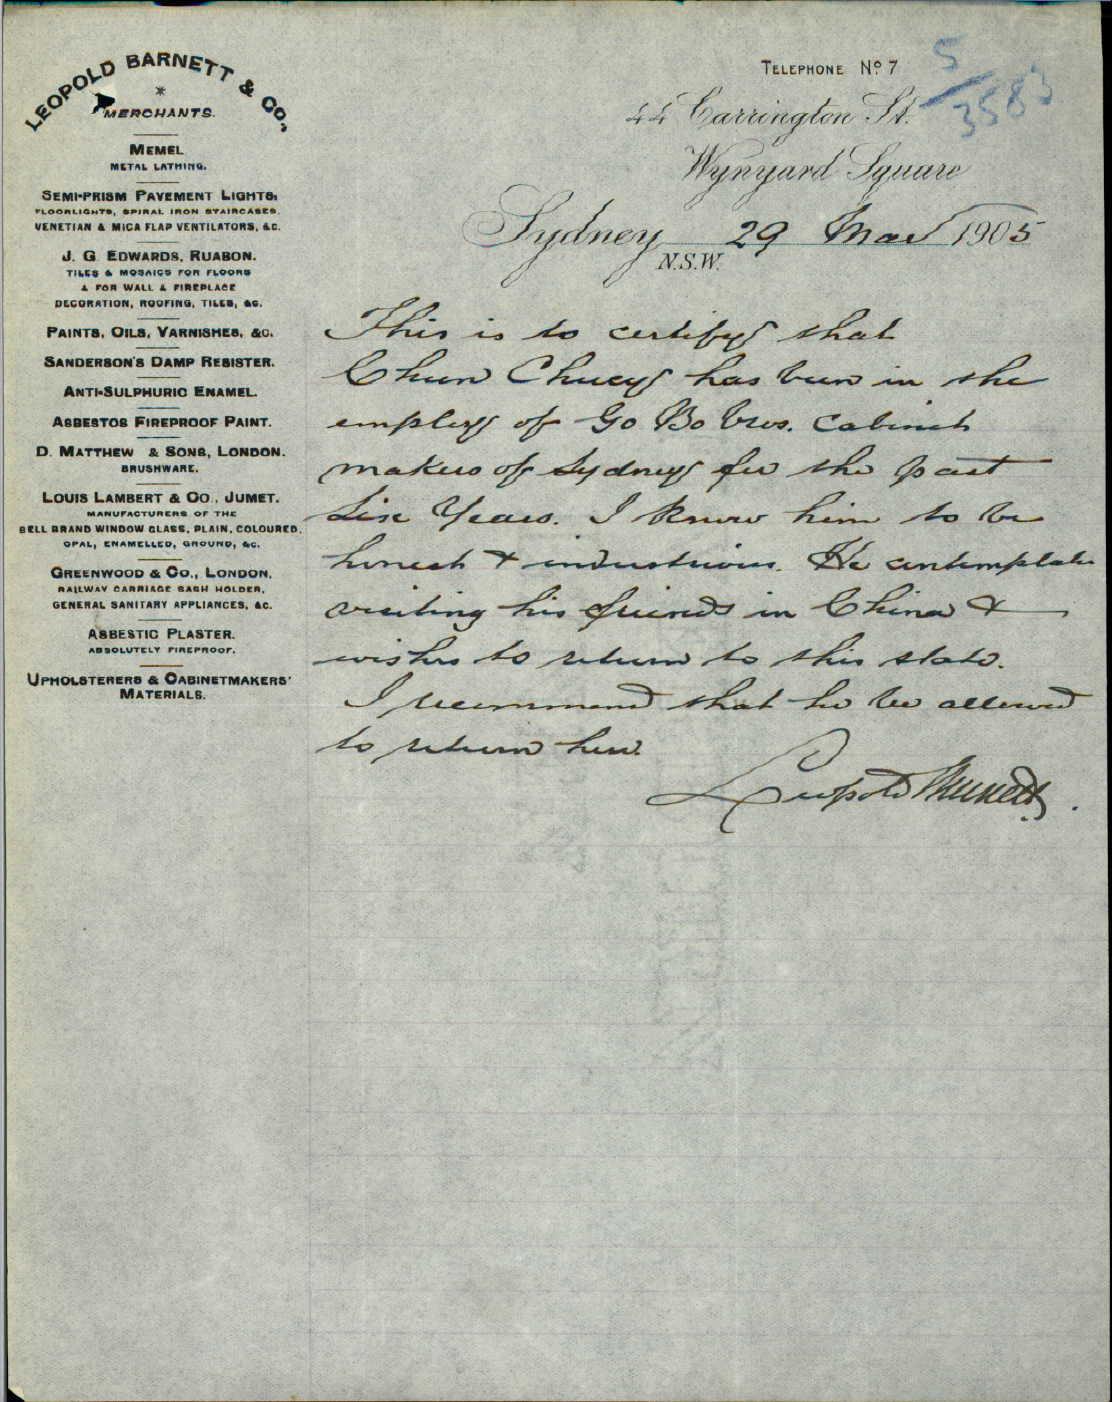 LEOPOLD BARNETT & CO.,
MERCHANTS.
MEMEL
METAL LATHING.
SEMI-PRISM PAVEMENT LIGHTS,
FLOORLIGHTS, SPIRAL IRON STAIRCASES.
VENETIAN & MICA FLAP VENTILATORS, &C.
J. G. EDWARDS, RUABON.
TILES & MOSAICS FOR FLOORS
& FOR WALL & FIREPLACE
DECORATION, ROOFING, TILES, &C.
PAINTS, OILS, VARNISHES, &C.
SANDERSON'S DAMP RESISTER.
ANTI-SULPHURIC ENAMEL.
ASBESTOS FIREPROOF PAINT.
D. MATTHEW & SONS, LONDON.
BRUSHWARE.
LOUIS LAMBERT & CO., JUMET.
MANUFACTURERS OF THE
BELL BRAND WINDOW GLASS, PLAIN, COLOURED,
OPAL, ENAMELLED, GROUND, &C.
GREENWOOD & CO., LONDON.
RAILWAY CARRIAGE SASH HOLDER,
GENERAL SANITARY APPLIANCES, &C.
ASBESTIC PLASTER.
ABSOLUTELY FIREPROOF.
UPHOLSTERERS & CABINETMAKERS'
MATERIALS.
TELEPHONE No 7
5
3583
44 Carrington St.
Wynyard Square
Sydney 29 Mar 1905
N.S.W.
This is to certify that
Chun Chuey has been in the
employ of Go Bo Bros. Cabinet
makers of Sydney for the past
Six Years. I know him to be
honest & industrious. He contemplates
visiting his friends in China &
wishes to return to this state.
I recommend that he be allowed
to return here.
Leopold Barnett